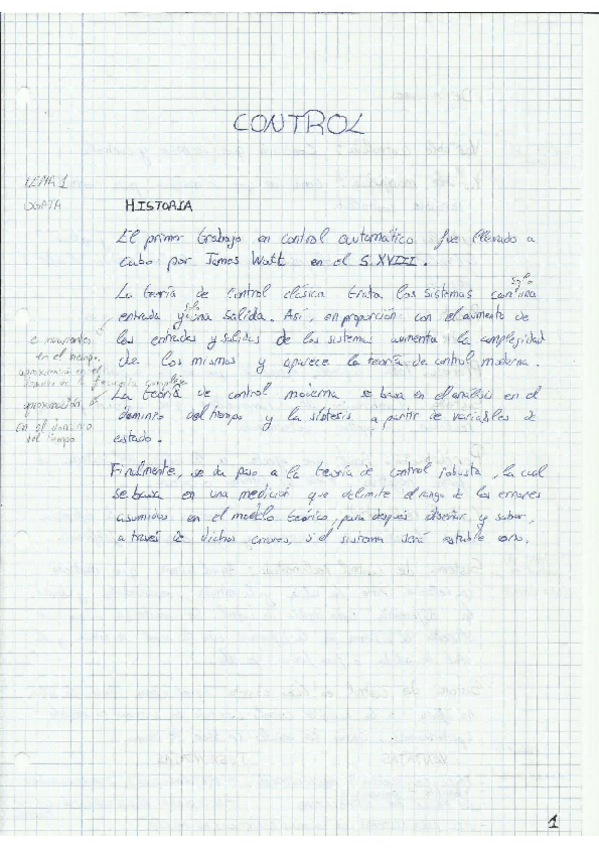 CONTROL
TEMA 1
OGATA
HISTORIA
El primer trabajo en control automático fue llevado a
cabo por James Watt en el S. XVIII.
La teoría de control clásica trata los sistemas con sólo una
entrada y sólo una salida. Así, en proporción con el aumento de
las entradas y salidas de los sistemas aumenta la complejidad
de los mismos y aparece la teoría de control moderna.
en el tiempo,
aproximación en el
dominio de la frecuencia compleja
La teoría de control moderna se basa en el análisis en el
dominio del tiempo y la síntesis a partir de variables de
estado.
aproximación
en el dominio
del tiempo
Finalmente, se da paso a la teoría de control robusta, la cual
se basa en una medición que delimite el rango de los errores
asumidos en el modelo teórico, para después diseñar y saber,
a través de dichos errores, si el sistema será estable o no.
1